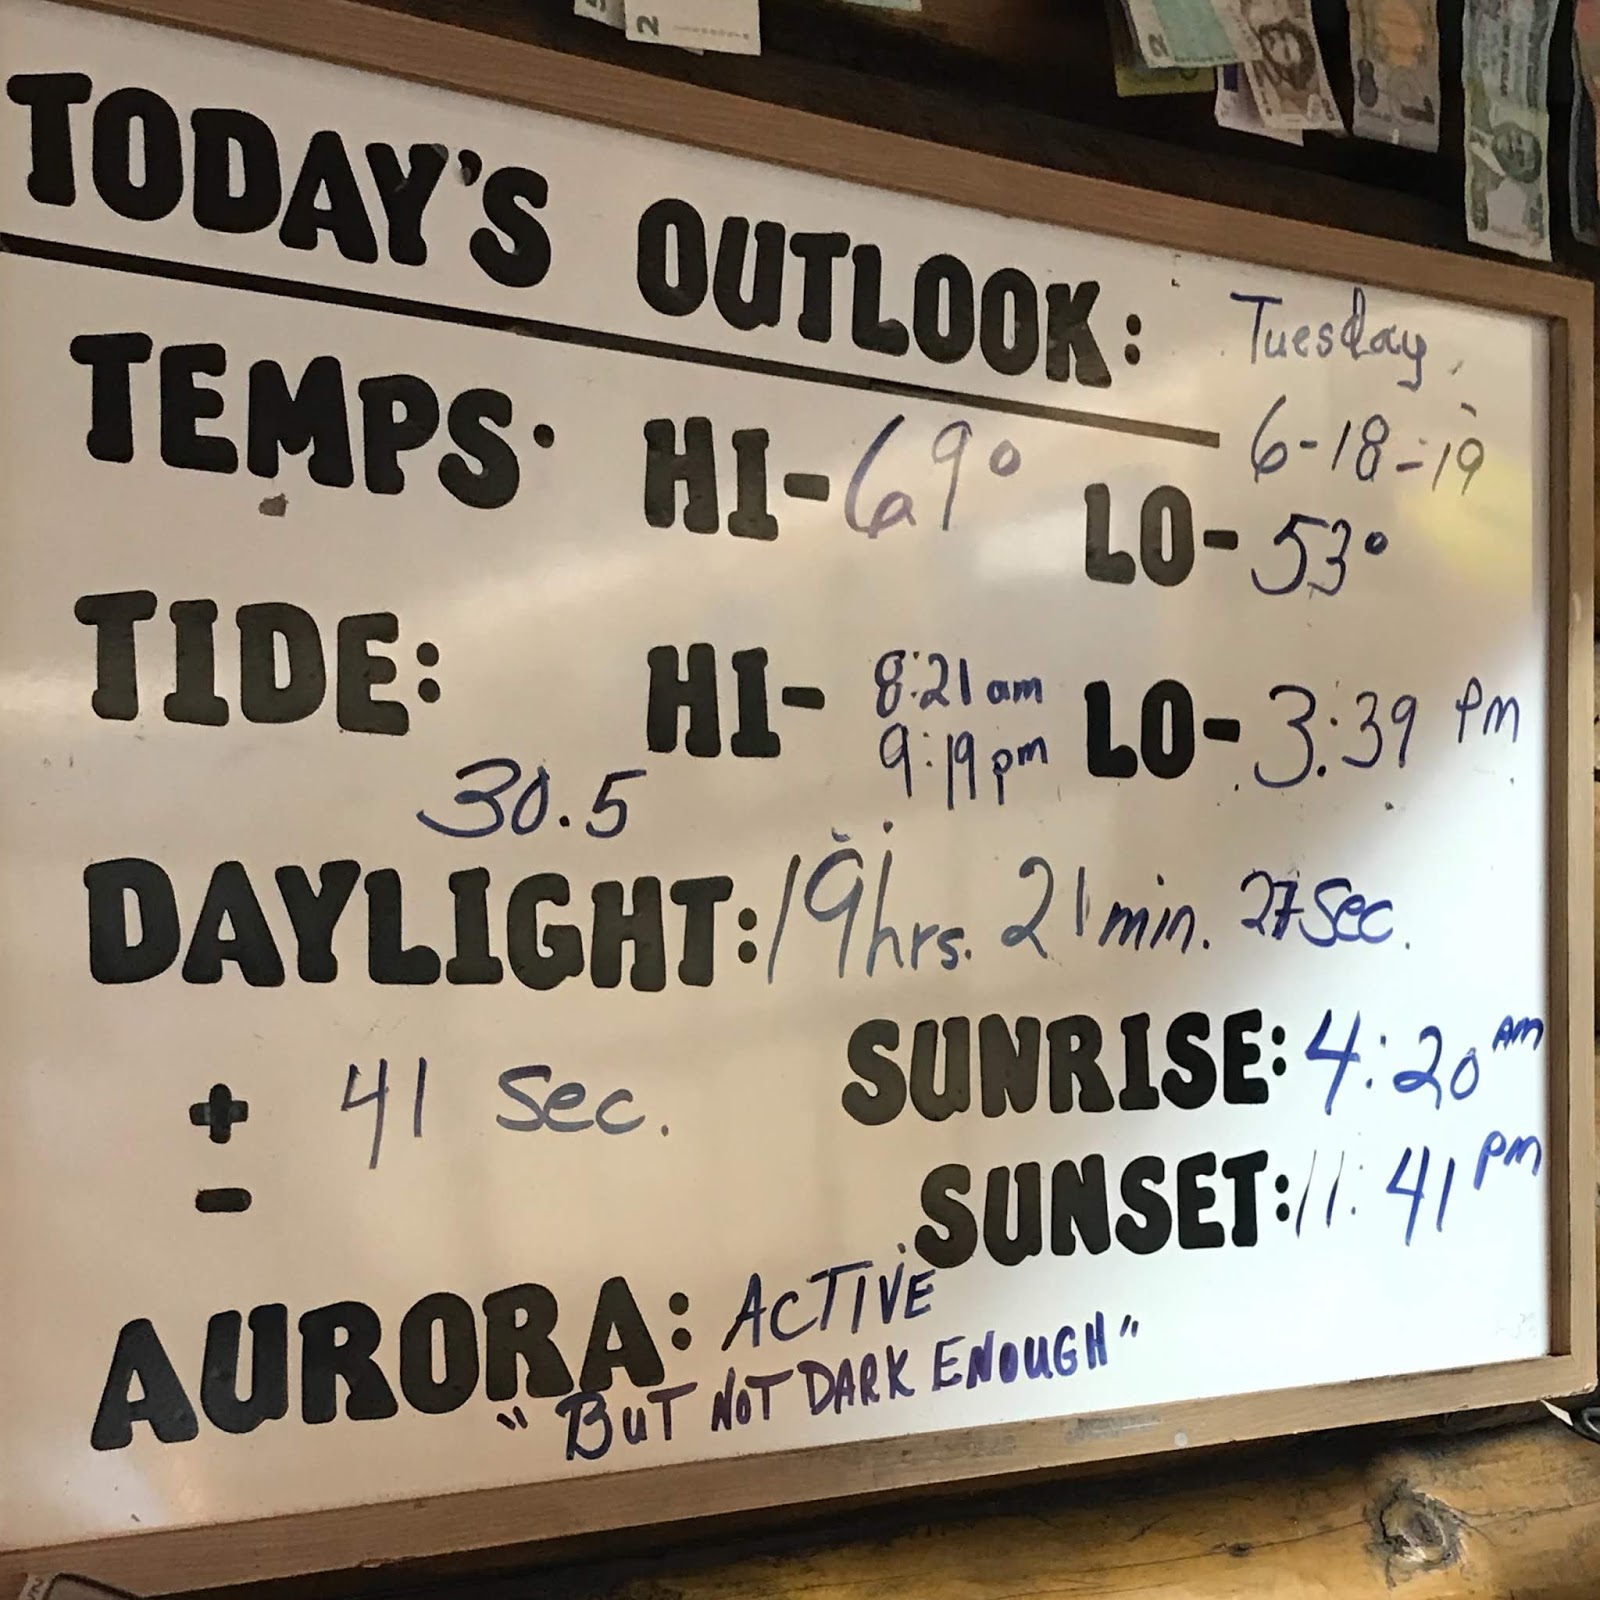 TODAY'S OUTLOOK: Tuesday
6-18-19
TEMPS: HI-69° LO-53°
TIDE: HI- 8:21 am LO-3:39 PM
9:19 pm
30.5
DAYLIGHT: 19hrs. 21 min. 27 Sec.
+ 41 Sec. SUNRISE: 4:20 AM
- SUNSET: 11:41 PM
AURORA: ACTIVE
"BUT NOT DARK ENOUGH"